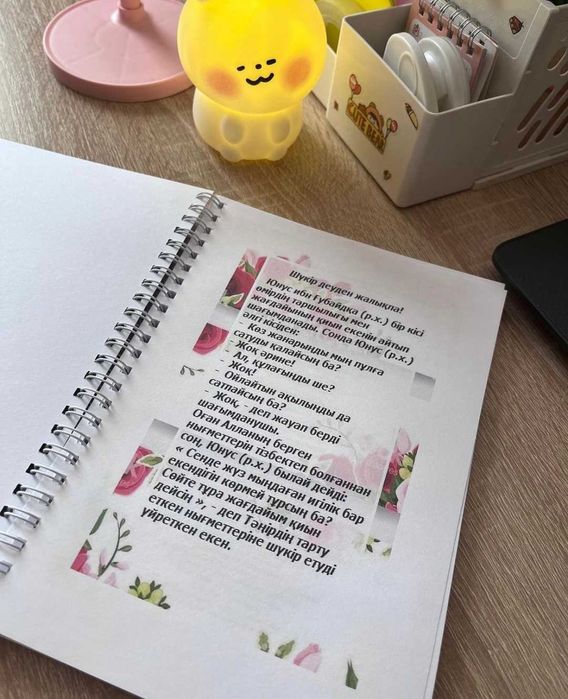 CUTE BEAR
Шүкір деуден жалықпа!
Юнус ибн Ғубайдқа (р.х.) бір кісі
өмірдің таршылығы мен
жағдайының қиын екенін айтып
шағымданады. Сонда Юнус (р.х.)
әлгі кісіден:
- Көз жанарыңды мың пұлға
сатуды қалайсың ба?
- Жоқ әрине!
- Ал, құлағыңды ше?
- Жоқ!
- Ойлайтын ақылыңды да
сатпайсың ба?
- Жоқ, - деп жауап берді
шағымданушы.
Оған Алланың берген
нығметтерін тізбектеп болғаннан
соң, Юнус (р.х.) былай дейді:
« Сенде жүз мыңдаған игілік бар
екендігін көрмей тұрсың ба?
Сөйте тұра жағдайым қиын
дейсің », - деп Тәңірдің тарту
еткен нығметтеріне шүкір етуді
үйреткен екен.